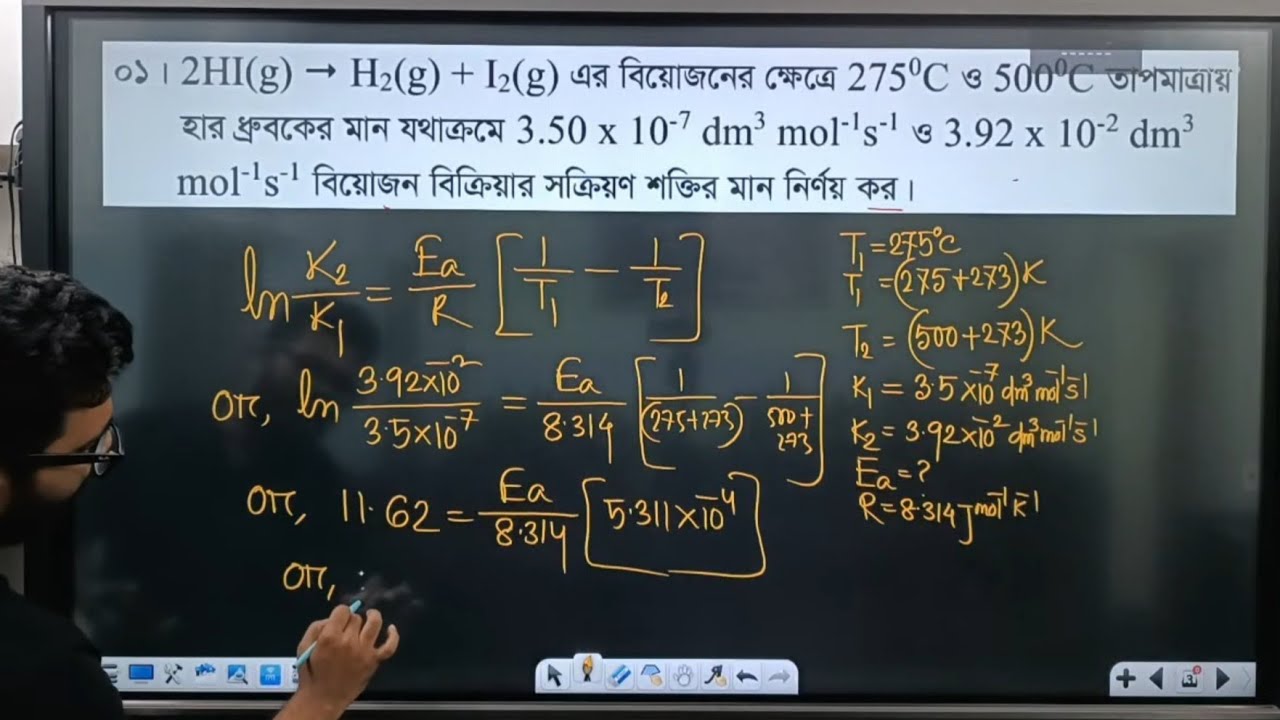 ০১। 2HI(g) → H₂(g) + I₂(g) এর বিয়োজনের ক্ষেত্রে 275⁰C ও 500⁰C তাপমাত্রায়
হার ধ্রুবকের মান যথাক্রমে 3.50 x 10⁻⁷ dm³ mol⁻¹s⁻¹ ও 3.92 x 10⁻² dm³
mol⁻¹s⁻¹ বিয়োজন বিক্রিয়ার সক্রিয়ণ শক্তির মান নির্ণয় কর।
ln K₂/K₁ = Ea/R [1/T₁ − 1/T₂]
or, ln 3.92×10⁻²/3.5×10⁻⁷ = Ea/8.314 [1/(275+273) − 1/500+273]
or, 11.62 = Ea/8.314 [5.311×10⁻⁴]
or,
T₁ = 275°C
T₁ = (275+273)K
T₂ = (500+273)K
K₁ = 3.5×10⁻⁷ dm³mol⁻¹s⁻¹
K₂ = 3.92×10⁻² dm³mol⁻¹s⁻¹
Ea = ?
R = 8.314 J mol⁻¹K⁻¹